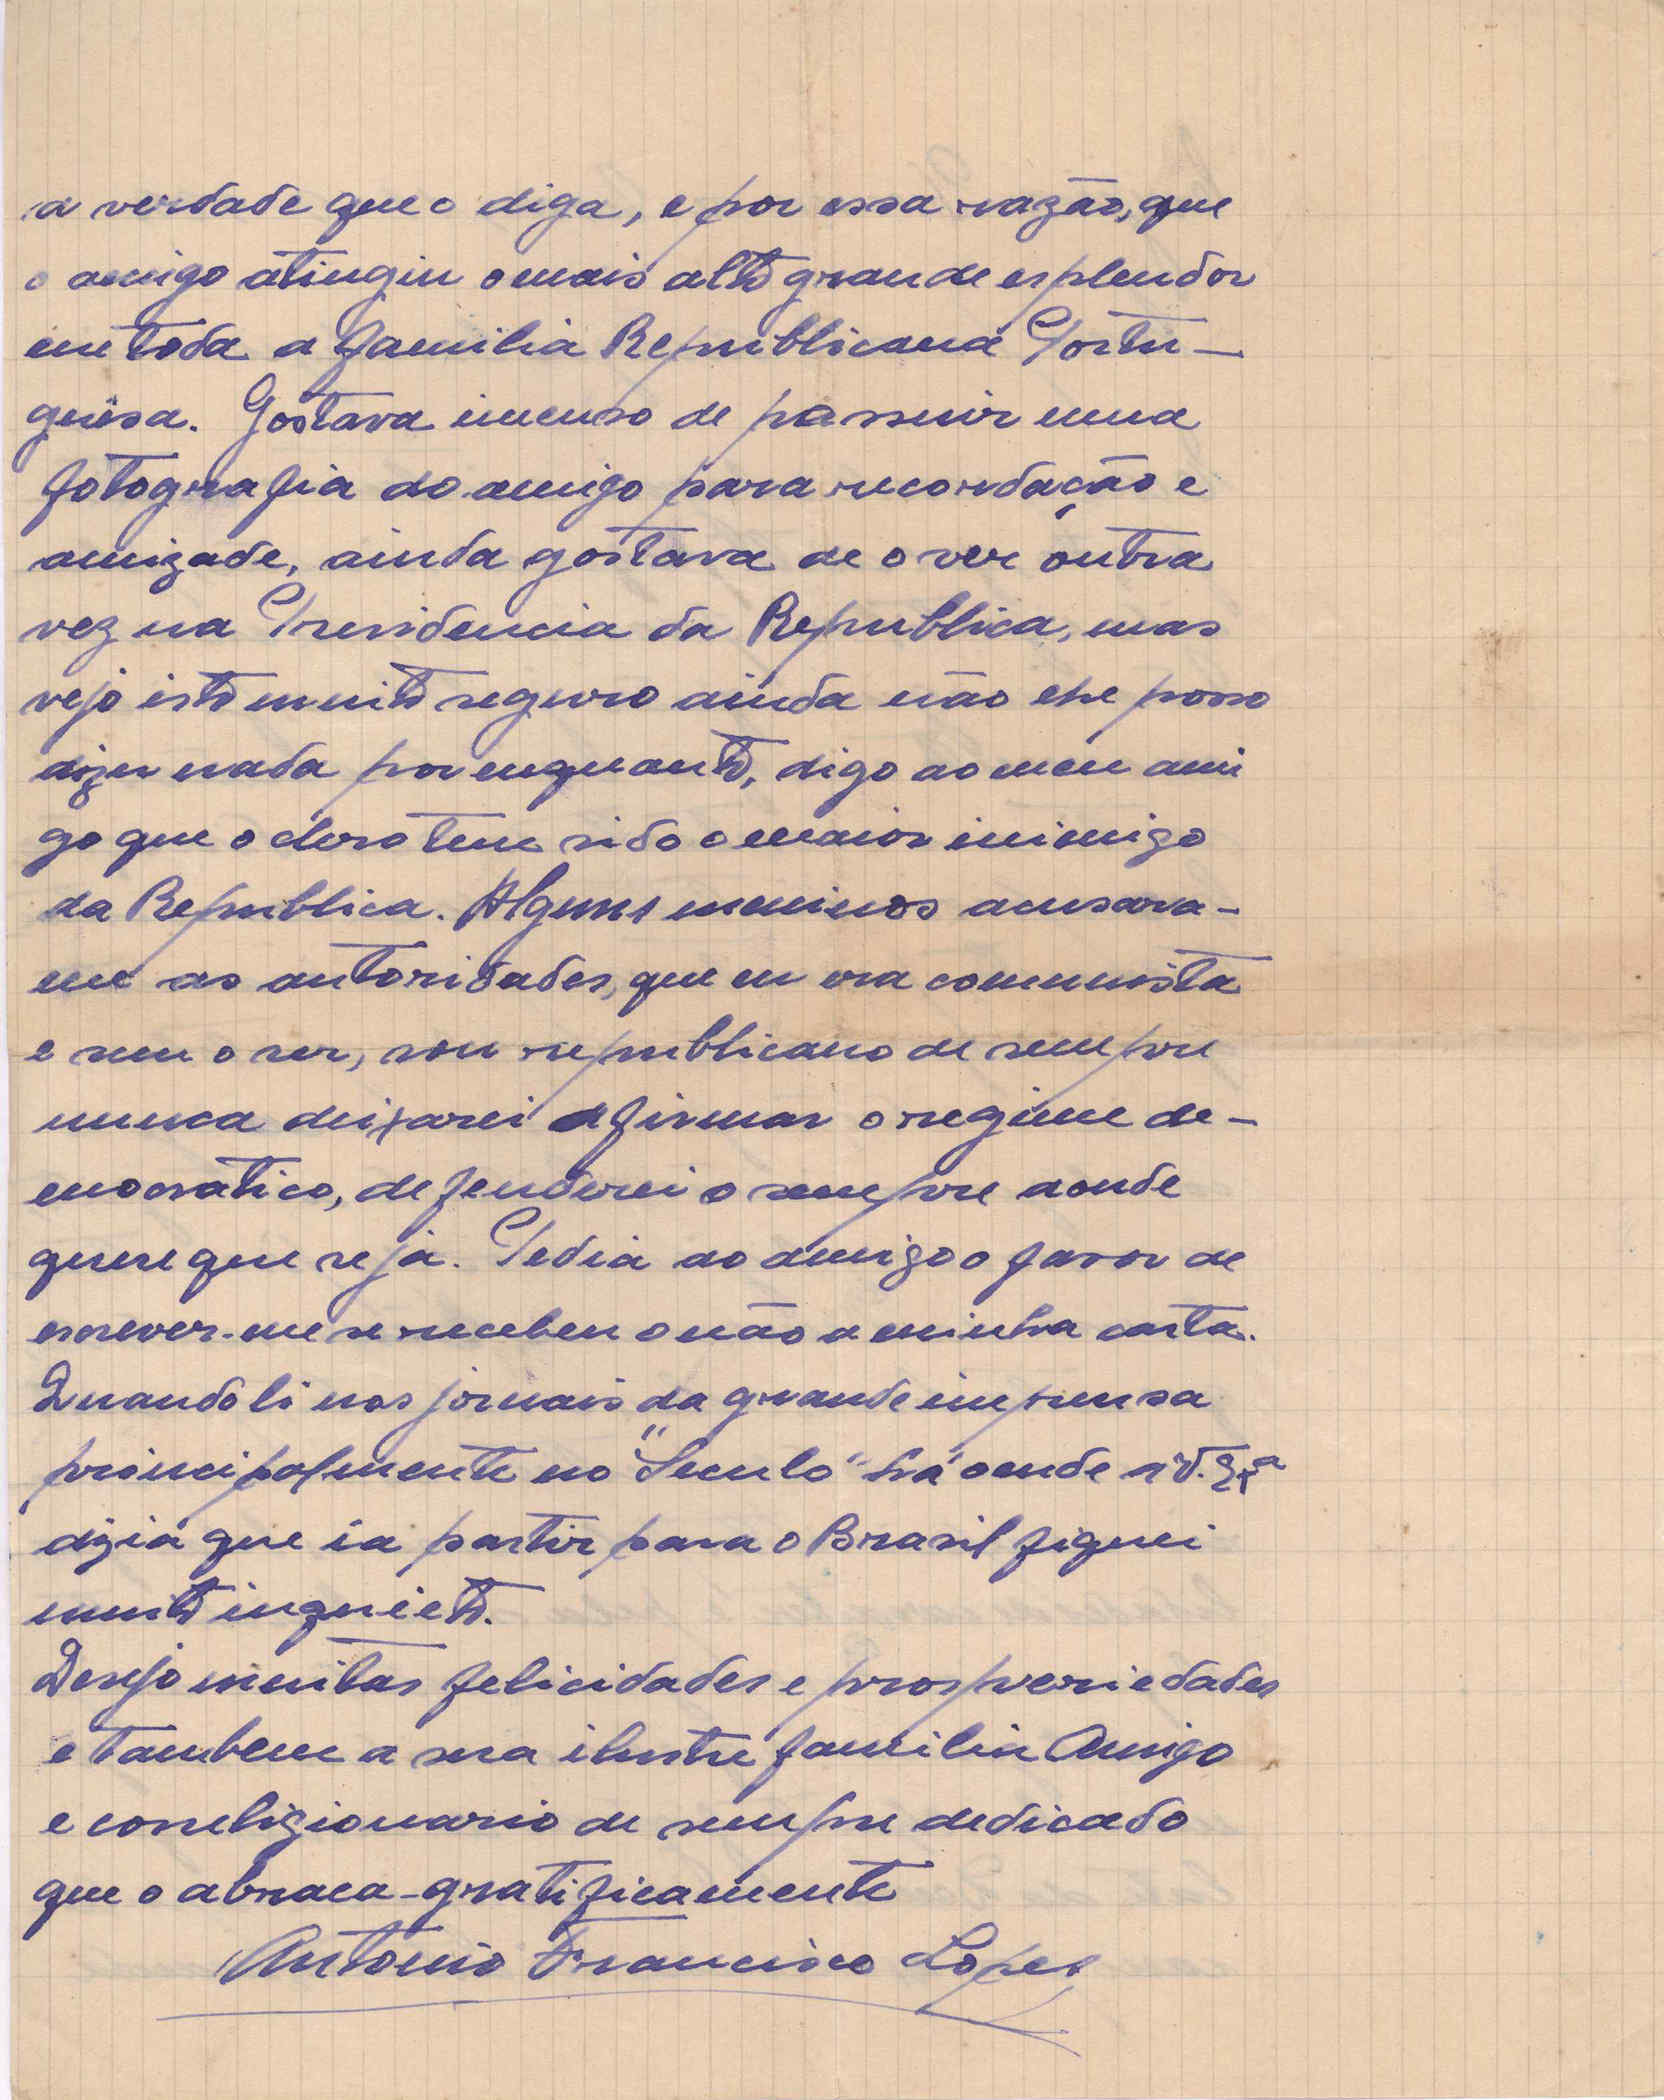 a verdade que o diga, e por essa razão, que
o amigo atingiu o mais alto grande esplendor
em toda a familia Republicana Portu-
guêsa. Gostava imenso de possuir uma
fotografia do amigo para recordação e
amizade, ainda gostava de o ver outra
vez na Presidencia da Republica, mas
vejo isto muito seguro ainda não lhe posso
dizer nada por enquanto, digo ao meu ami
go que o clero tem sido o maior inimigo
da Republica. Alguns meninos acusara-
me as autoridades, que eu era comunista
e sem o ser, sou republicano de sempre
nunca deixarei afirmar o regime de-
mocratico, defenderei o sempre aonde
quere que seja. Pedia ao amigo o favor de
escrever-me se recebeu o não a minha carta.
Quando li nos jornais da grande imprensa
principalmente no "Seculo" aonde V. Exª
dizia que ia partir para o Brasil fiquei
muito inquieto.
Desejo muitas felicidades e prosperiedades
e tambem a sua ilustre familia Amigo
e correligionario de sempre dedicado
que o abraca-gratificamente
Antonio Francisco Lopes